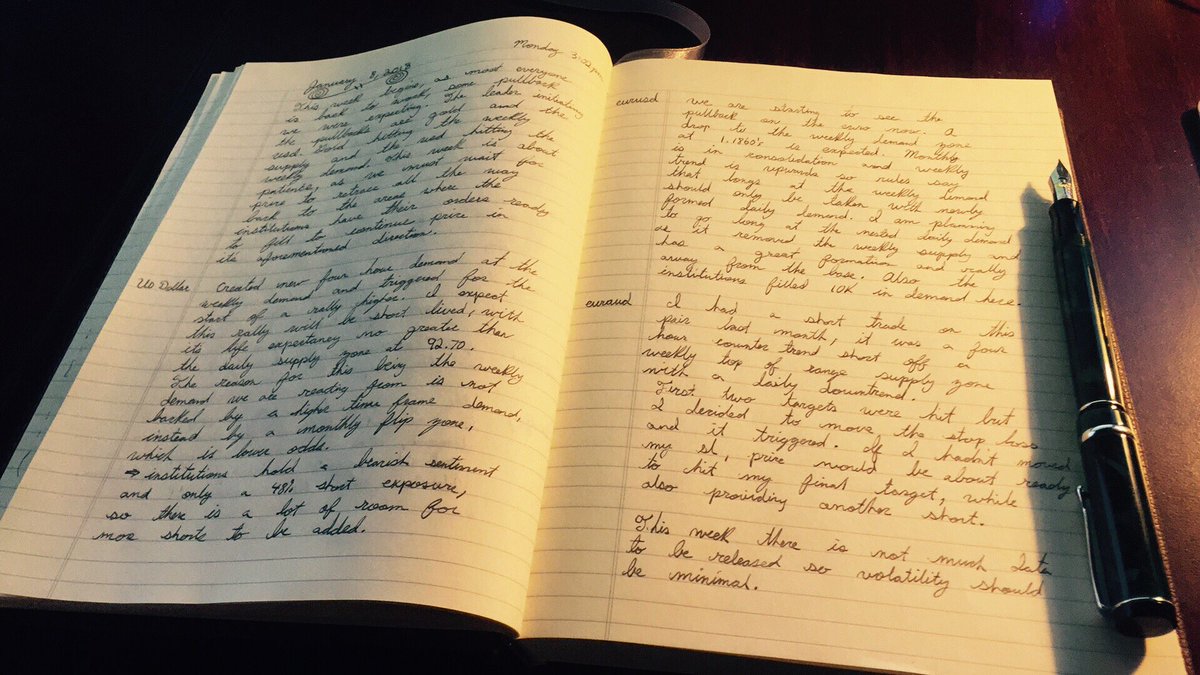 Monday 3:02 pm
January 8, 2018
This week begins, as most everyone
is back to work, some pullback
we were expecting. The leader initiating
the pullbacks are gold and the
usd. Gold hitting the weekly
supply and the usd hitting the
weekly demand. This week is about
patience, as we must wait for
price to retrace all the way
back to the areas where the
institutions have their orders ready
to fill to continue price in
its aforementioned direction.
US Dollar Created new four hour demand at the
weekly demand and triggered for the
start of a rally higher. I expect
this rally will be short lived, with
its life expectancy no greater than
the daily supply zone at 92.70.
The reason for this being the weekly
demand we are reacting from is not
backed by a higher time frame demand,
instead by a monthly flip zone,
which is lower odds.
→ institutions hold a bearish sentiment
and only a 48% short exposure,
so there is a lot of room for
more shorts to be added.
eurusd we are starting to see the
pullback on the euro now. A
drop to the weekly demand zone
at 1.1860's is expected. Monthly
is in consolidation and weekly
trend is upwards so rules say
that longs at the weekly demand
should only be taken with newly
formed daily demand. I am planning
to go long at the nested daily demand
as it removed the weekly supply and
has a great formation and rally
away from the base. Also the
institutions filled 10K in demand here.
euraud I had a short trade on this
pair last month, it was a four
hour counter trend short off a
weekly top of range supply zone
with a daily downtrend.
First two targets were hit but
I decided to move the stop loss
and it triggered. If I hadn't moved
my sl, price would be about ready
to hit my final target, while
also providing another short.
This week there is not much data
to be released so volatility should
be minimal.